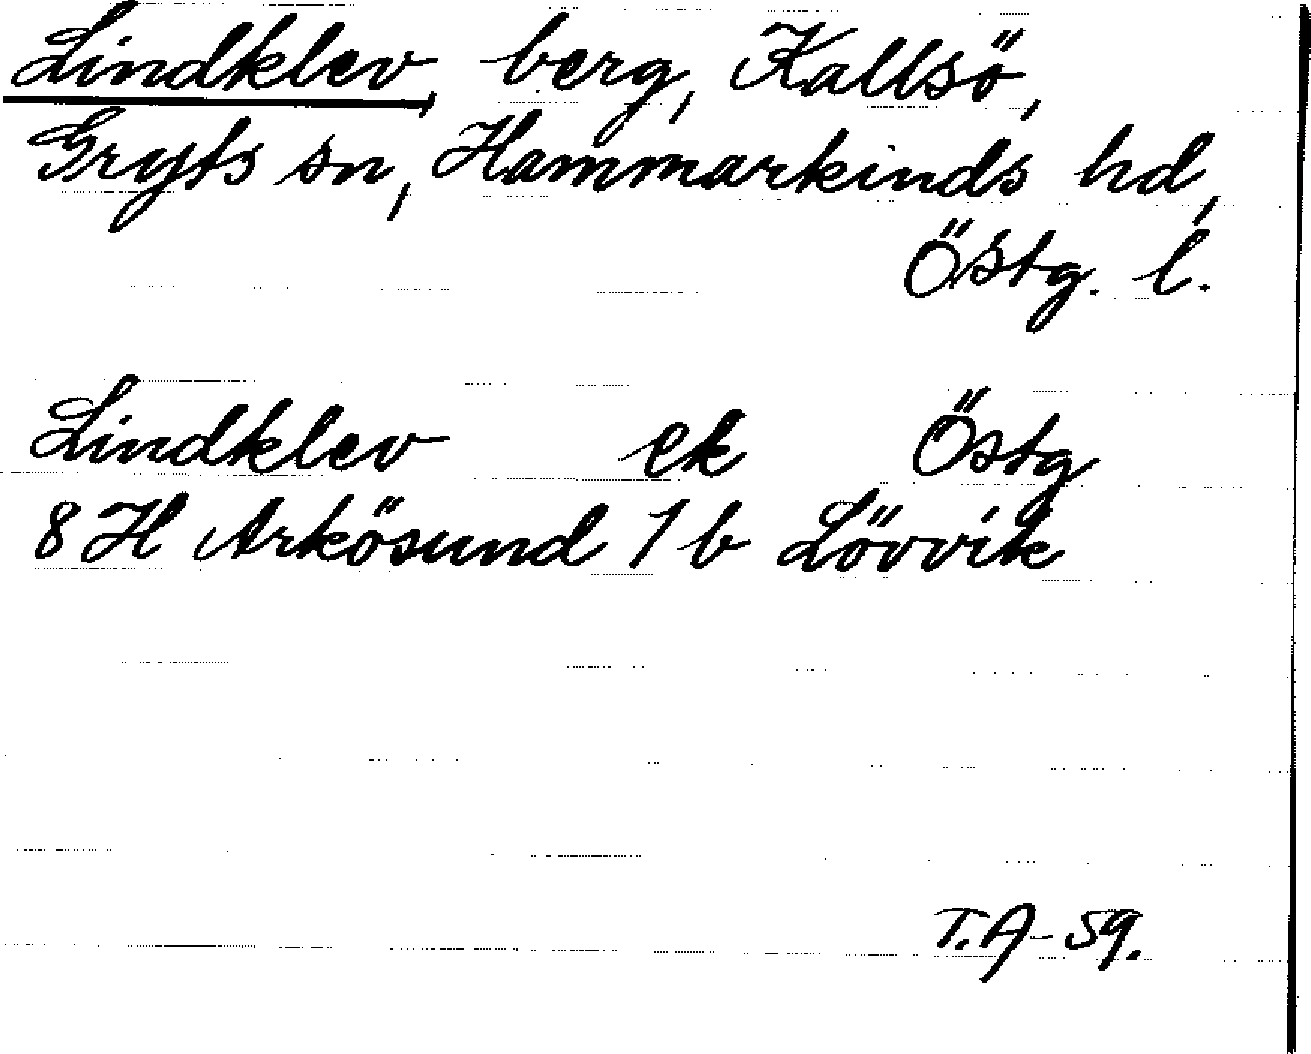 Lindklev, berg, Kallsö,
Gryts sn, Hammarkinds hd,
Östg. l.
Lindklev ek Östg
8 H Arkösund 1 b Lövvik
T.A-59.